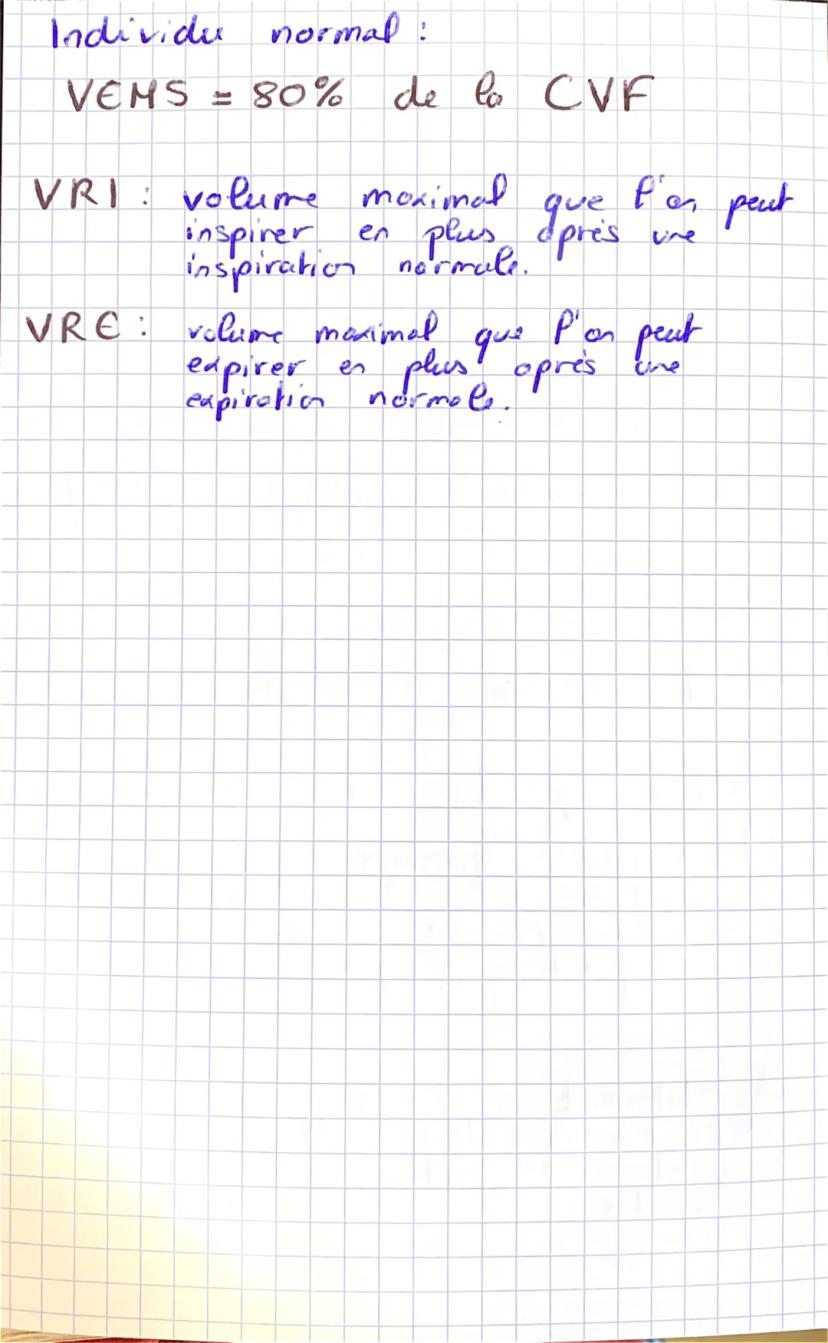 Individu normal :
VEMS = 80% de la CVF
VRI : volume maximal que l'on peut
inspirer en plus après une
inspiration normale.
VRE : volume maximal que l'on peut
expirer en plus après une
expiration normale.